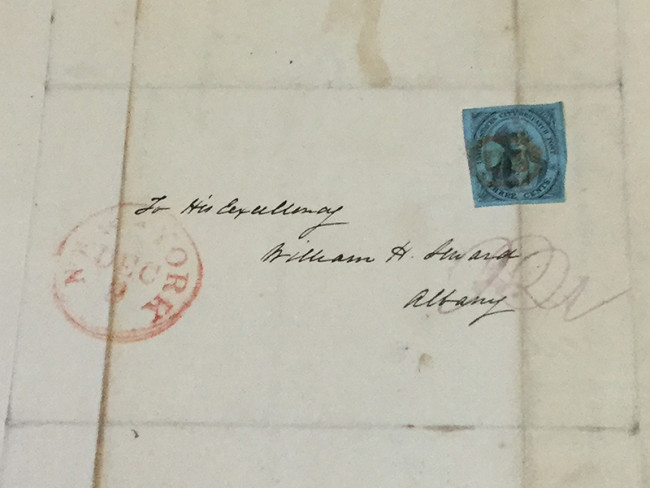 UNITED STATES CITY DESPATCH POST
THREE CENTS
To His Excellency
William H. Seward
Albany
NEW YORK
DEC